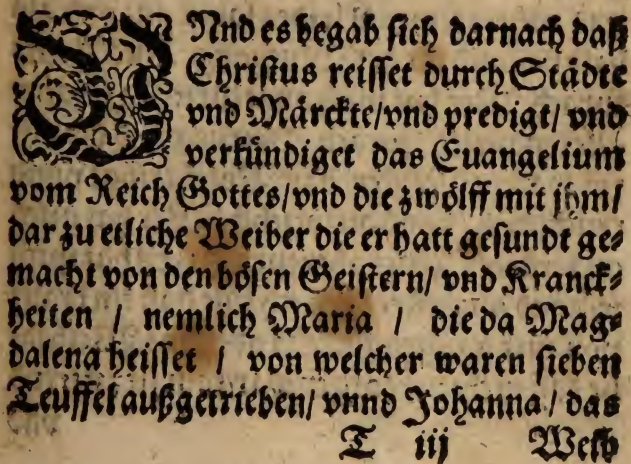 VNnd es begab sich darnach daß
Christus reisset durch Städte
vnd Märckte/vnd predigt/ vnd
verkündiget das Euangelium
vom Reich Gottes/vnd die zwölff mit jhm/
dar zu etliche Weiber die er hatt gesundt ge⸗
macht von den bösen Geistern/ vnd Kranck⸗
heiten / nemlich Maria / die da Mag⸗
dalena heisset / von welcher waren sieben
Teuffel außgetrieben/ vnnd Johanna / das
T iij Weib